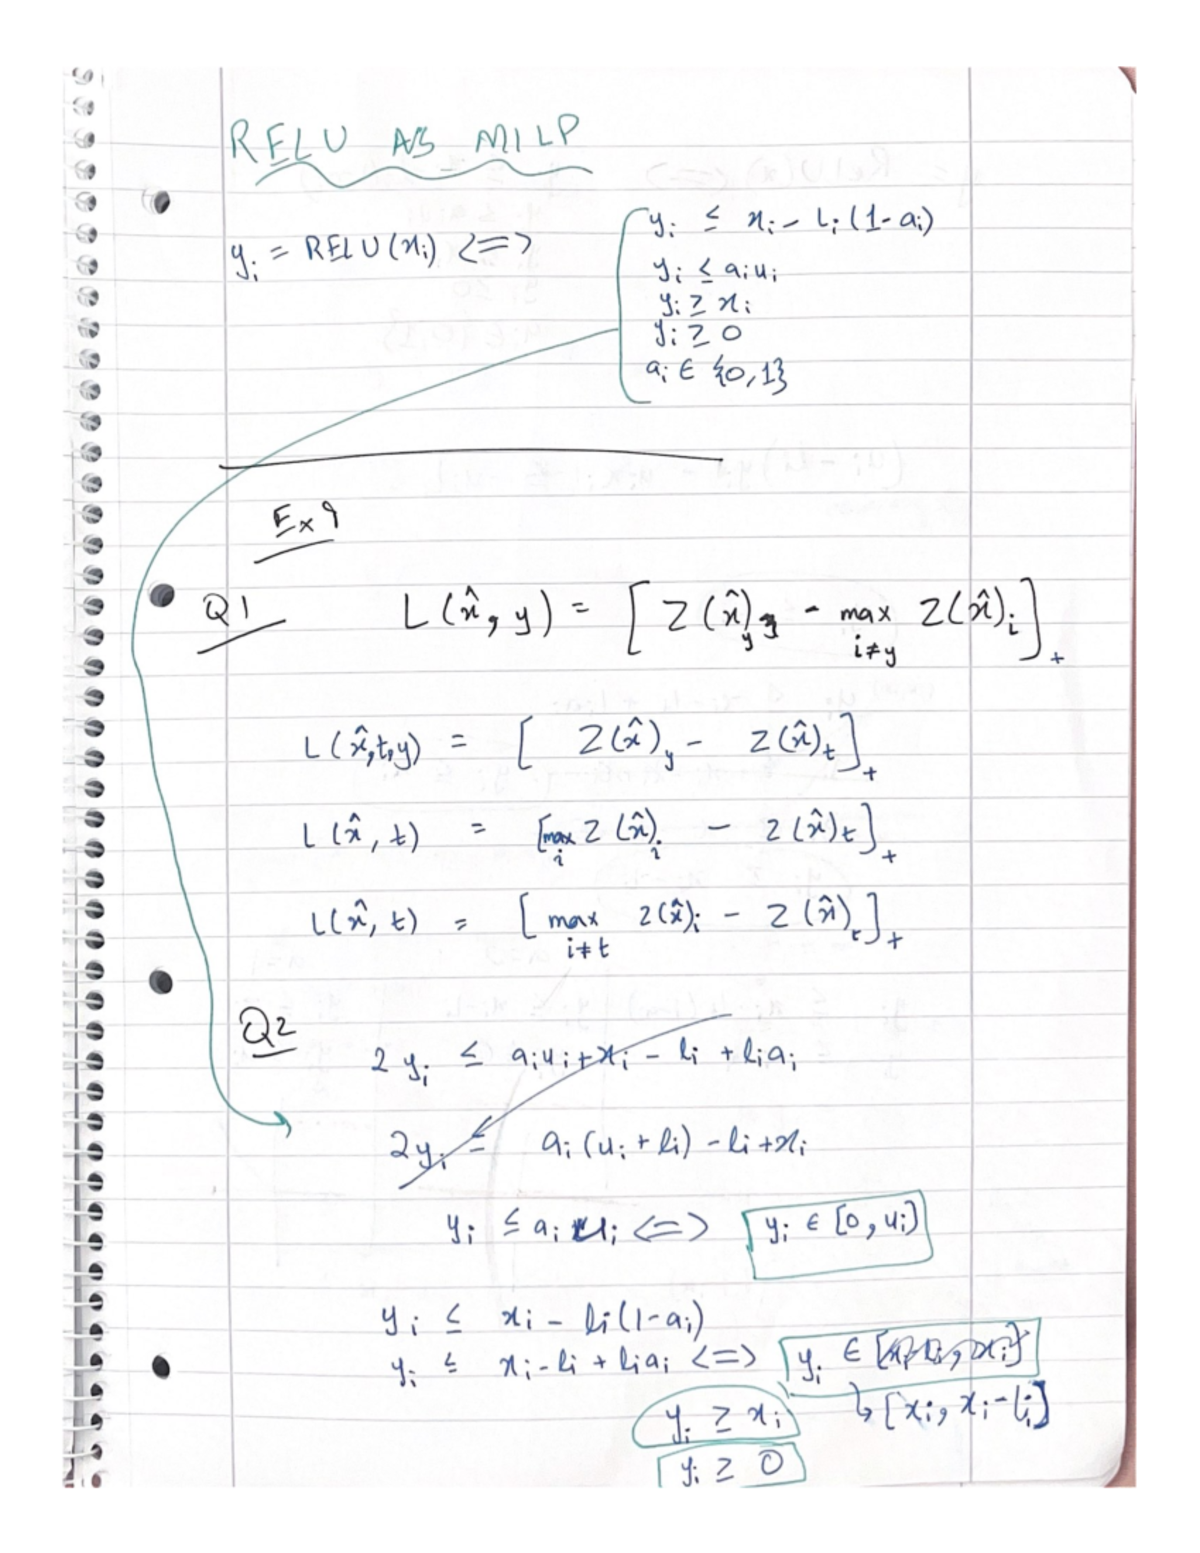 RELU AS MILP
y_i = RELU(x_i) <=>
y_i ≤ x_i - l_i (1-a_i)
y_i ≤ a_i u_i
y_i ≥ x_i
y_i ≥ 0
a_i ∈ {0,1}
Ex 9
Q1 L(x̂, y) = [Z(x̂)_y - max_{i≠y} Z(x̂)_i]_+
L(x̂,t,y) = [Z(x̂)_y - Z(x̂)_t]_+
L(x̂, t) = [max_i Z(x̂)_i - Z(x̂)_t]_+
L(x̂, t) = [max_{i≠t} Z(x̂)_i - Z(x̂)_t]_+
Q2
2y_i ≤ a_i u_i + x_i - l_i + l_i a_i
2y_i = a_i (u_i + l_i) - l_i + x_i
y_i ≤ a_i u_i <=> y_i ∈ [0, u_i]
y_i ≤ x_i - l_i(1-a_i)
y_i ≤ x_i - l_i + l_i a_i <=> y_i ∈
↳ [x_i, x_i - l_i]
y_i ≥ x_i
y_i ≥ 0